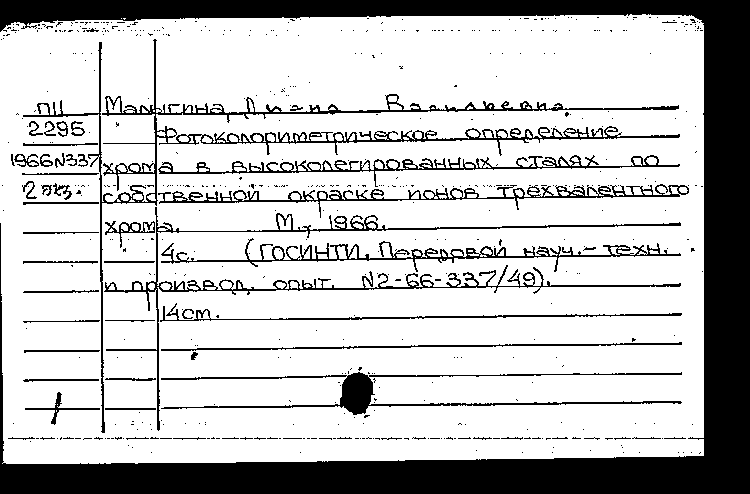 ПЦ Малыгина, Диана Васильевна.
2295 Фотоколориметрическое определение
1966N337 хрома в высоколегированных сталях по
2 экз. собственной окраске ионов трехвалентного
хрома. М., 1966.
4с. (ГОСИНТИ. Передовой науч.-техн.
и производ. опыт. N2-66-337/49).
14cm.